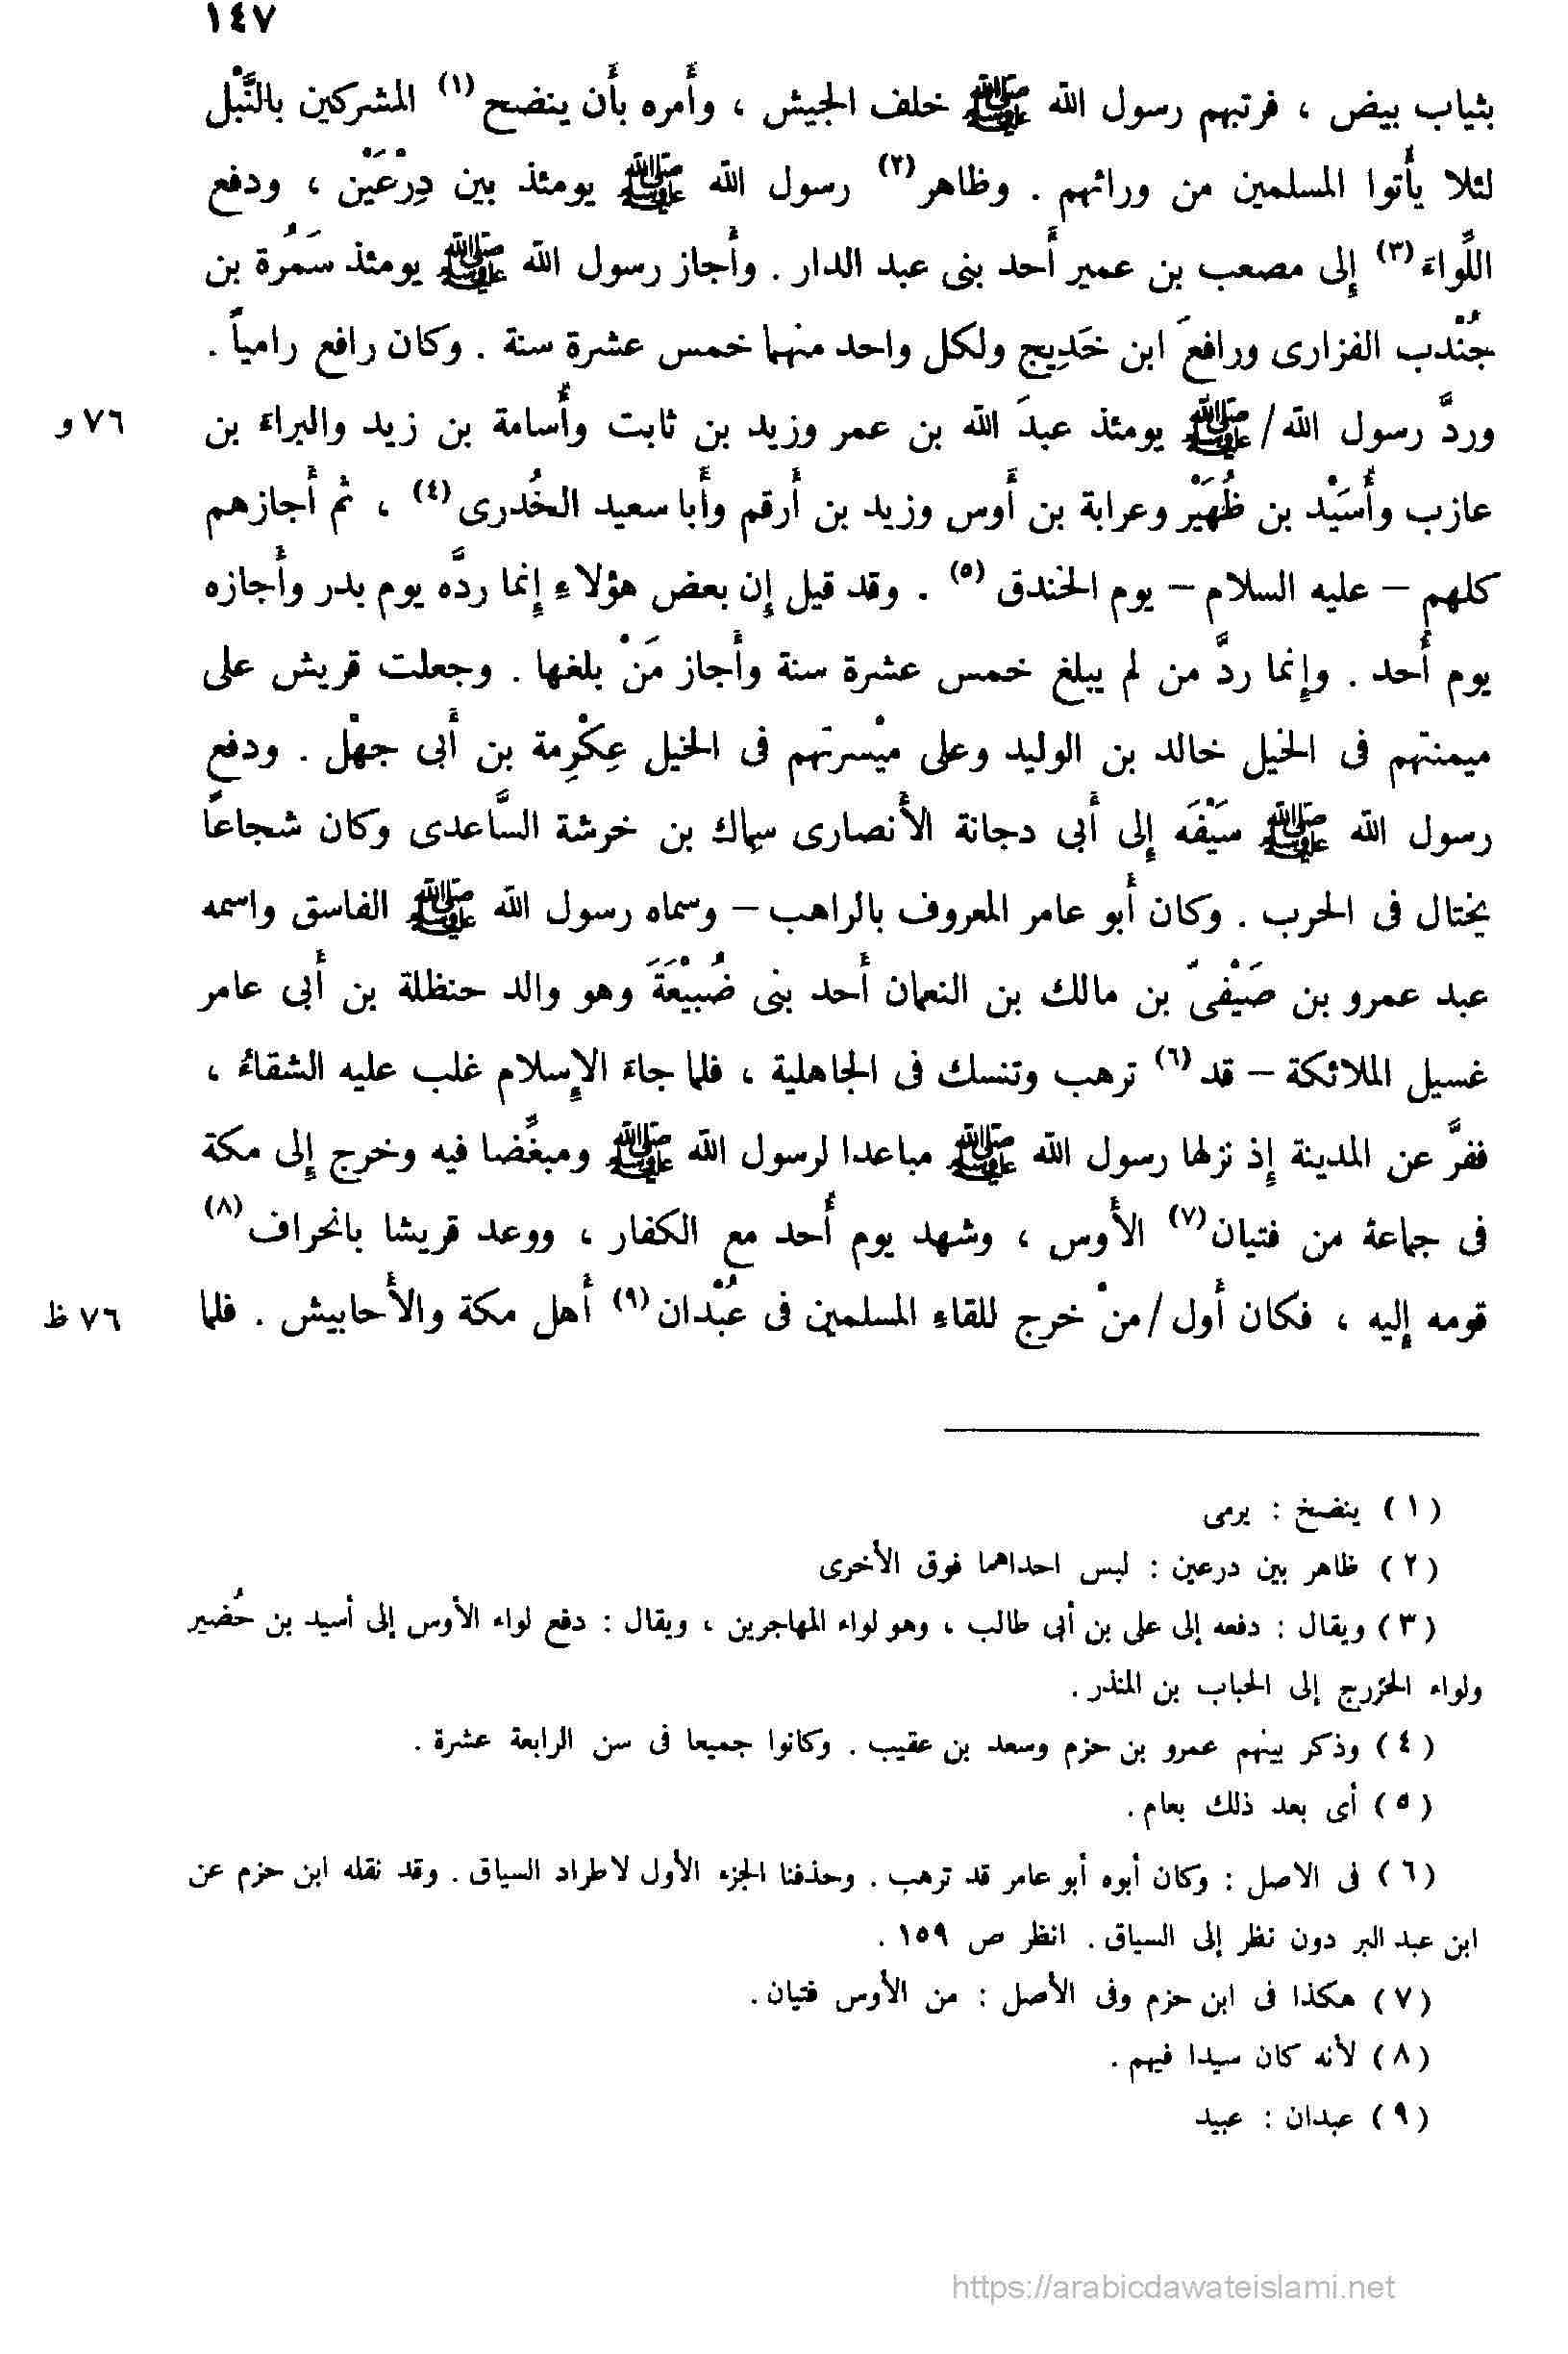 ١٤٧
بثياب بيض ، فرتبهم رسول الله ﷺ خلف الجيش ، وأَمره بأَن ينضح (١) المشركين بالنَّبْل
لئلا يأْتوا المسلمين من ورائهم . وظاهر (٢) رسول الله ﷺ يومئذ بين دِرْعَيْن ، ودفع
اللِّواءَ (٣) إِلى مصعب بن عمير أَحد بنى عبد الدار . وأَجاز رسول الله ﷺ يومئذ سَمُرة بن
جُنْدب الفزارى ورافعَ ابن خَدِيج ولكل واحد منهما خمس عشرة سنة . وكان رافع رامياً .
وردَّ رسول الله/ ﷺ يومئذ عبدَ الله بن عمر وزيد بن ثابت وأُسامة بن زيد والبراءَ بن
٧٦ و
عازب وأُسَيْد بن ظُهَيْر وعرابة بن أَوس وزيد بن أَرقم وأَبا سعيد الخُدرى (٤) ، ثم أَجازهم
كلهم – عليه السلام – يوم الخندق (٥) . وقد قيل إِن بعض هؤلاءِ إِنما ردَّه يوم بدر وأَجازه
يوم أُحد . وإِنما ردَّ من لم يبلغ خمس عشرة سنة وأَجاز مَنْ بلغها . وجعلت قريش على
ميمنتهم فى الخيل خالد بن الوليد وعلى ميْسرتهم فى الخيل عِكْرِمة بن أَبى جهْل . ودفع
رسول الله ﷺ سَيْفَه إِلى أَبى دجانة الأَنصارى سِماك بن خرشة السَّاعدى وكان شجاعاً
يختال فى الحرب . وكان أَبو عامر المعروف بالراهب – وسماه رسول الله ﷺ الفاسق واسمه
عبد عمرو بن صَيْفىّ بن مالك بن النعمان أَحد بنى ضُبَيْعَةَ وهو والد حنظلة بن أَبى عامر
غسيل الملائكة – قد (٦) ترهب وتنسك فى الجاهلية ، فلما جاءَ الإِسلام غلب عليه الشقاءُ ،
ففرَّ عن المدينة إِذ نزلها رسول الله ﷺ مباعدا لرسول الله ﷺ ومبغِّضا فيه وخرج إِلى مكة
فى جماعة من فتيان (٧) الأَوس ، وشهد يوم أُحد مع الكفار ، ووعد قريشا بانحراف (٨)
قومه إِليه ، فكان أَول /منْ خرج للقاءِ المسلمين فى عُبْدان (٩) أَهل مكة والأَحابيش . فلما
٧٦ ظ
(١) ينضخ : يرمى
(٢) ظاهر بين درعين : لبس احداهما فوق الأخرى
(٣) ويقال : دفعه إلى على بن أبى طالب ، وهو لواء المهاجرين ، ويقال : دفع لواء الأوس إلى أسيد بن حُضير
ولواء الخزرج إلى الحباب بن المنذر .
(٤) وذكر بينهم عمرو بن حزم وسعد بن عقيب . وكانوا جميعا فى سن الرابعة عشرة .
(٥) أى بعد ذلك بعام .
(٦) فى الاصل : وكان أبوه أبو عامر قد ترهب . وحذفنا الجزء الأول لاطراد السياق . وقد نقله ابن حزم عن
ابن عبد البر دون نظر إلى السياق . انظر ص ١٥٩ .
(٧) هكذا فى ابن حزم وفى الأصل : من الأوس فتيان .
(٨) لأنه كان سيدا فيهم .
(٩) عبدان : عبيد
https://arabicdawateislami.net